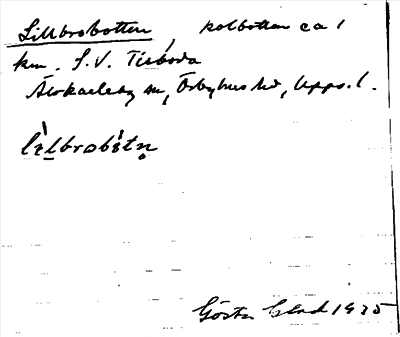 Lillbrobotten, kolbotten ca 1
km. S.V. Tisboda
Älvkarleby sn, Örbyhus hd, Upps. l.
lìlbrobòtn̥
Gösta 1935